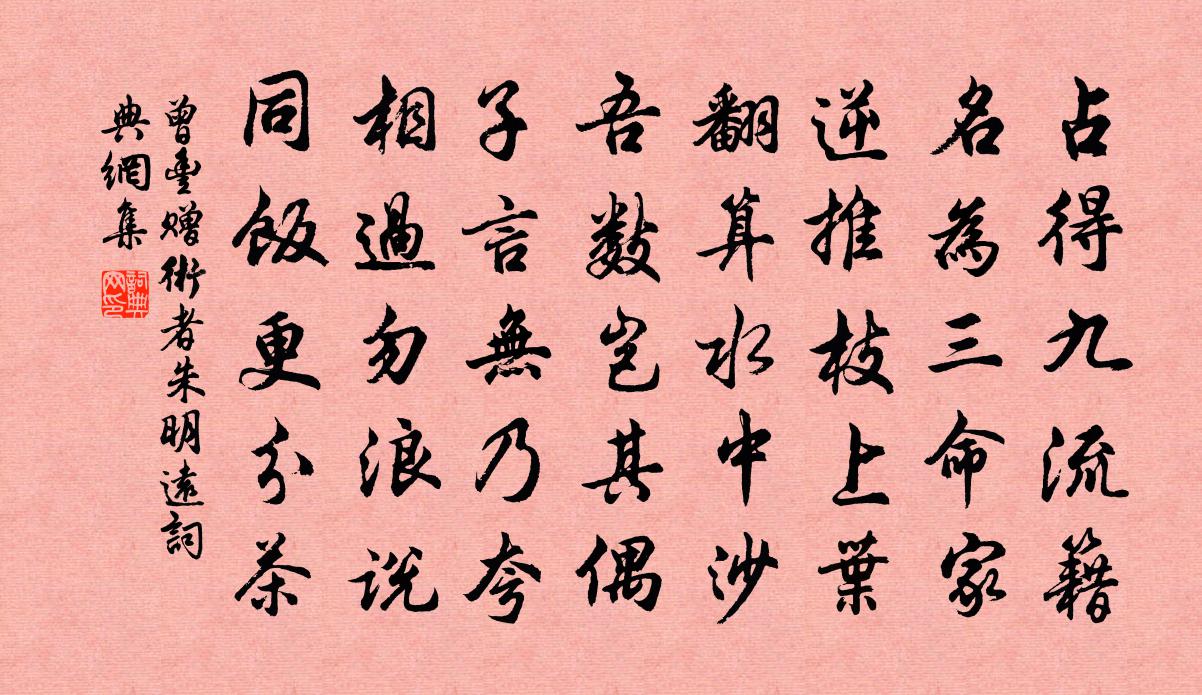 占得九流籍
名為三命家
逆推枝上葉
翻算水中沙
吾數豈其偶
子言無乃夸
相過勿浪說
同飯更分茶
曾豐贈術者朱明遠詞
典網集
詞典
网印